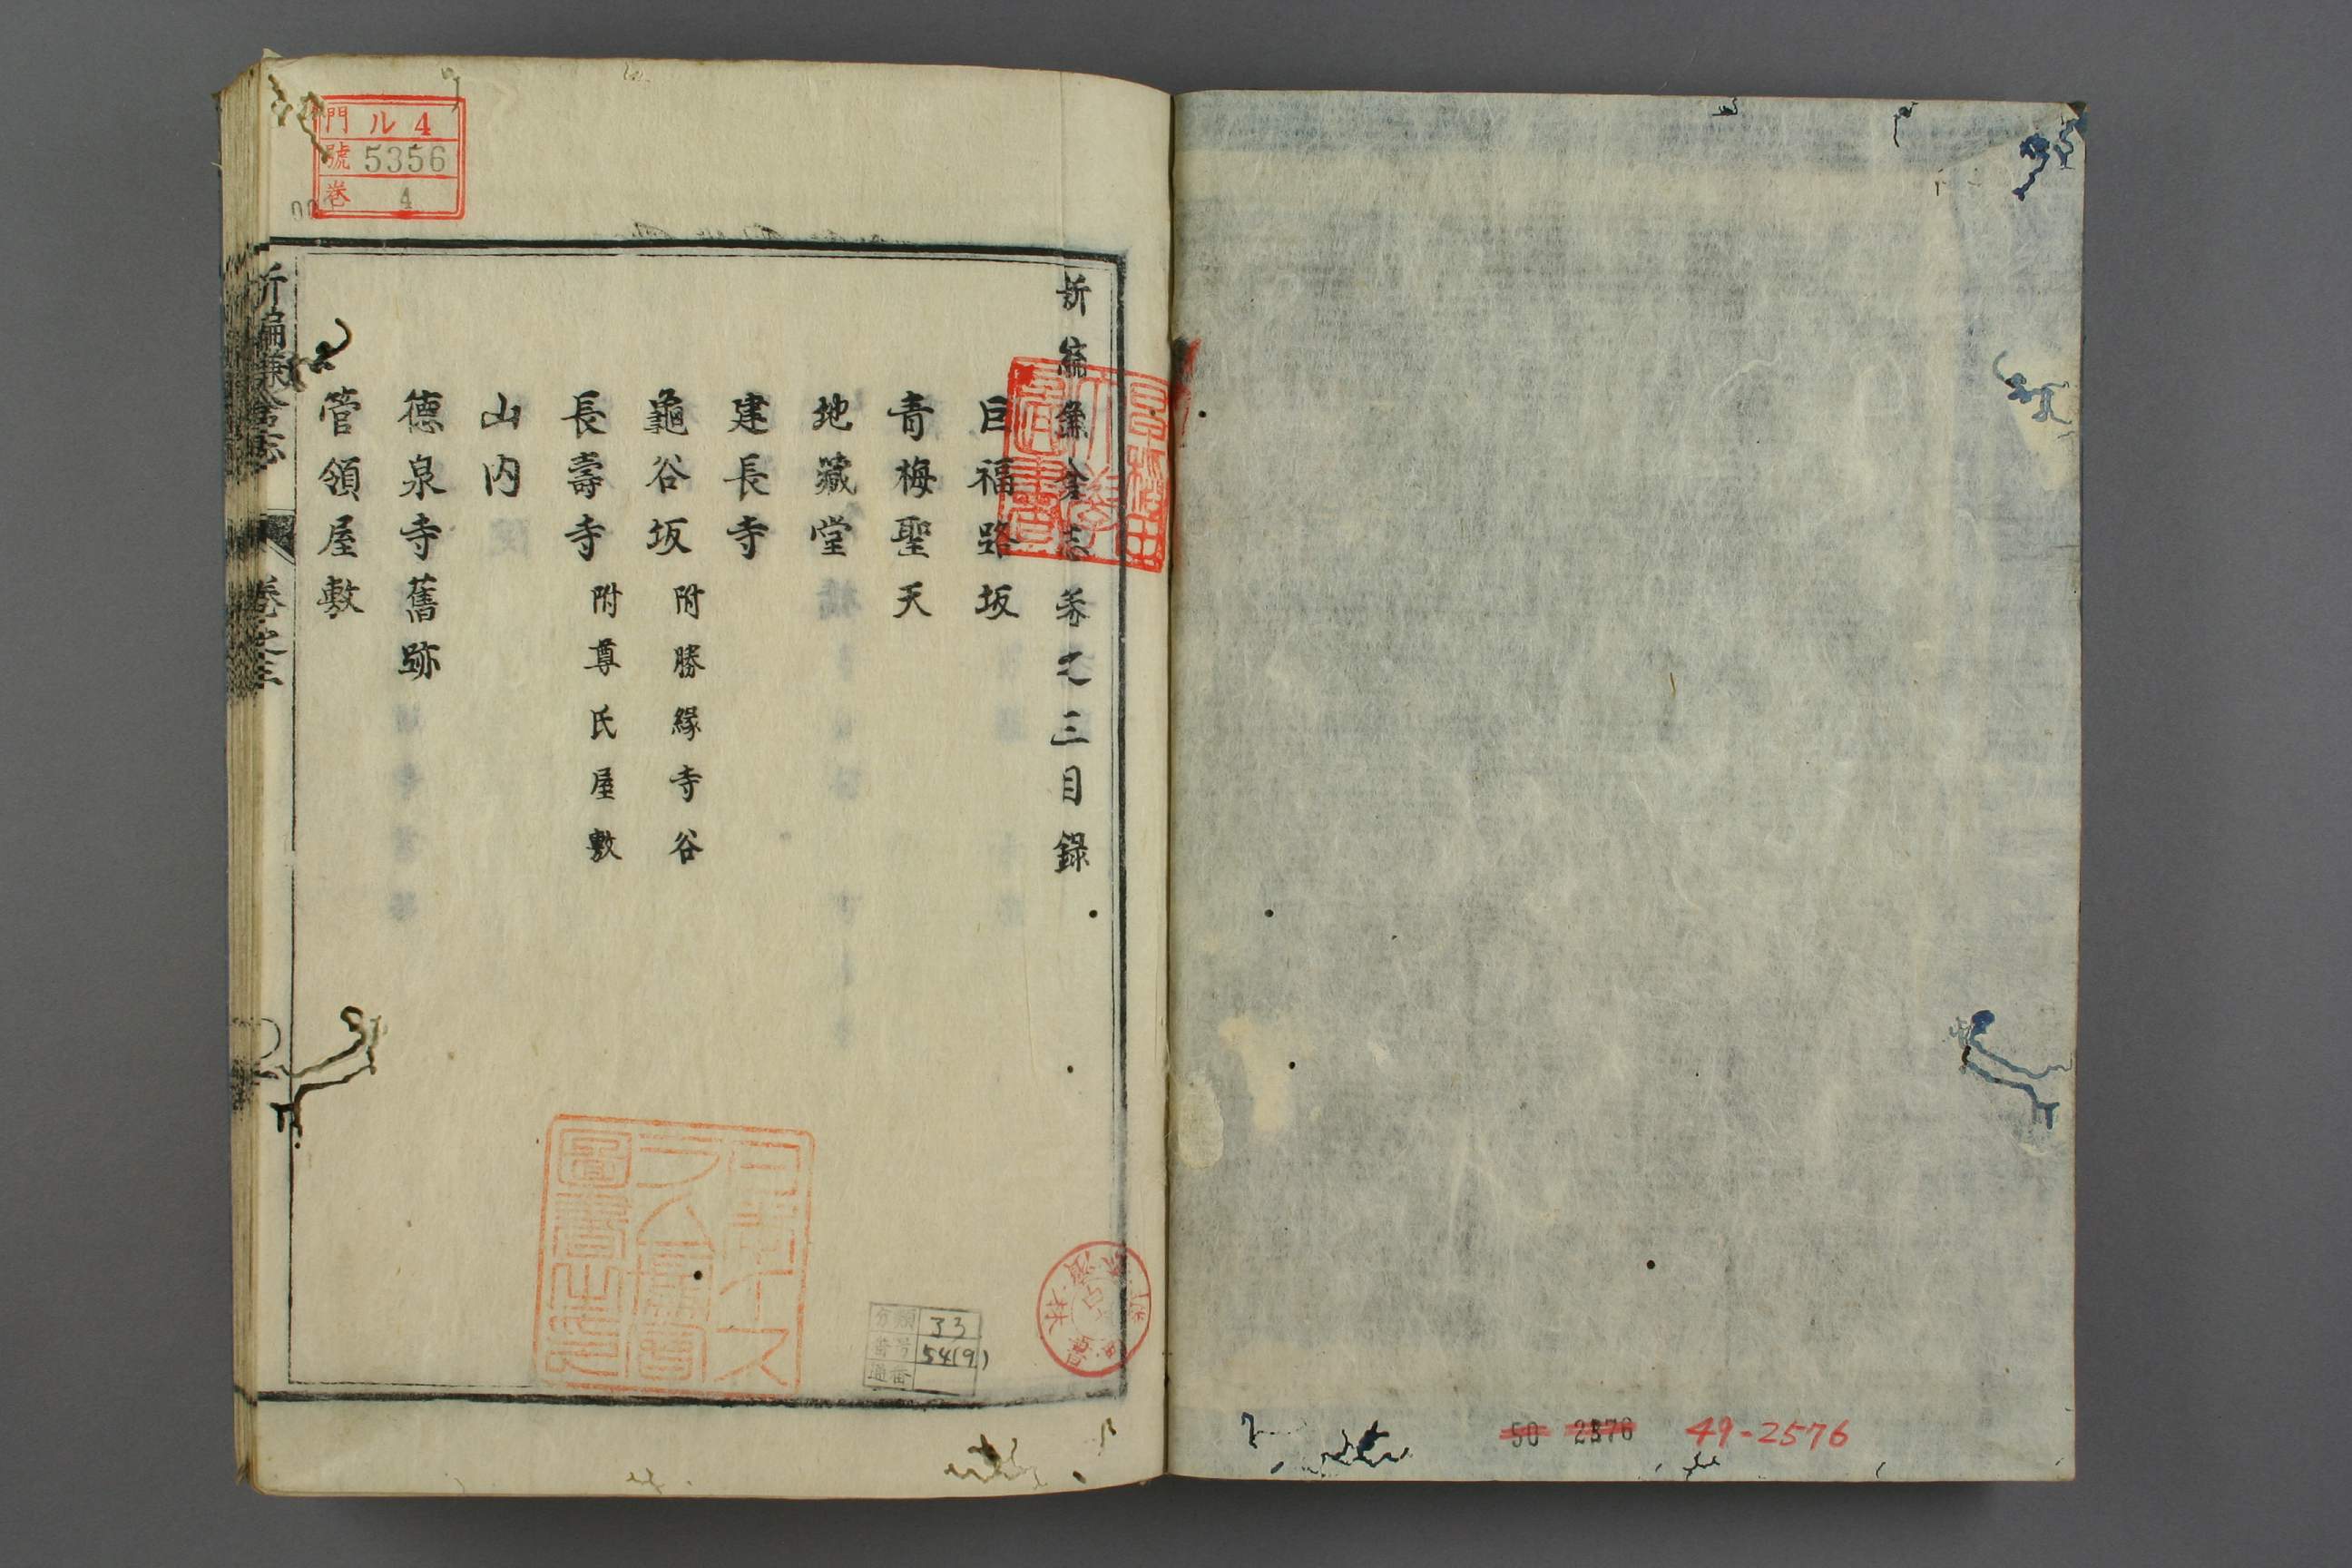 新編鎌倉志卷之三目錄
巨福路坂
青梅聖天
地藏堂
建長寺
龜谷坂 附勝緣寺谷
長壽寺 附尊氏屋敷
山內
德泉寺舊跡
管領屋敷
新編鎌倉志 卷之三
門 ル 4
號 5356
卷 4
分類 33
番号 54(9)
通番
50 2576
49-2576